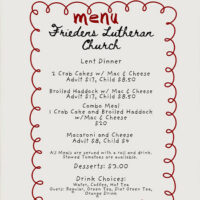 menu
Friedens Lutheran
Church
Lent Dinner
2 Crab Cakes w/ Mac & Cheese
Adult $17, Child $8.50
Broiled Haddock w/ Mac & Cheese
Adult $17, Child $8.50
Combo Meal
1 Crab Cake and Broiled Haddock
w/Mac & Cheese
$20
Macaroni and Cheese
Adult $8, Child $4
All Meals are served with a roll and drink.
Stewed Tomatoes are available.
Desserts: $3.00
Drink Choices:
Water, Coffee, Hot Tea
Guers: Regular, Green Tea, Diet Green Tea,
Orange Drink